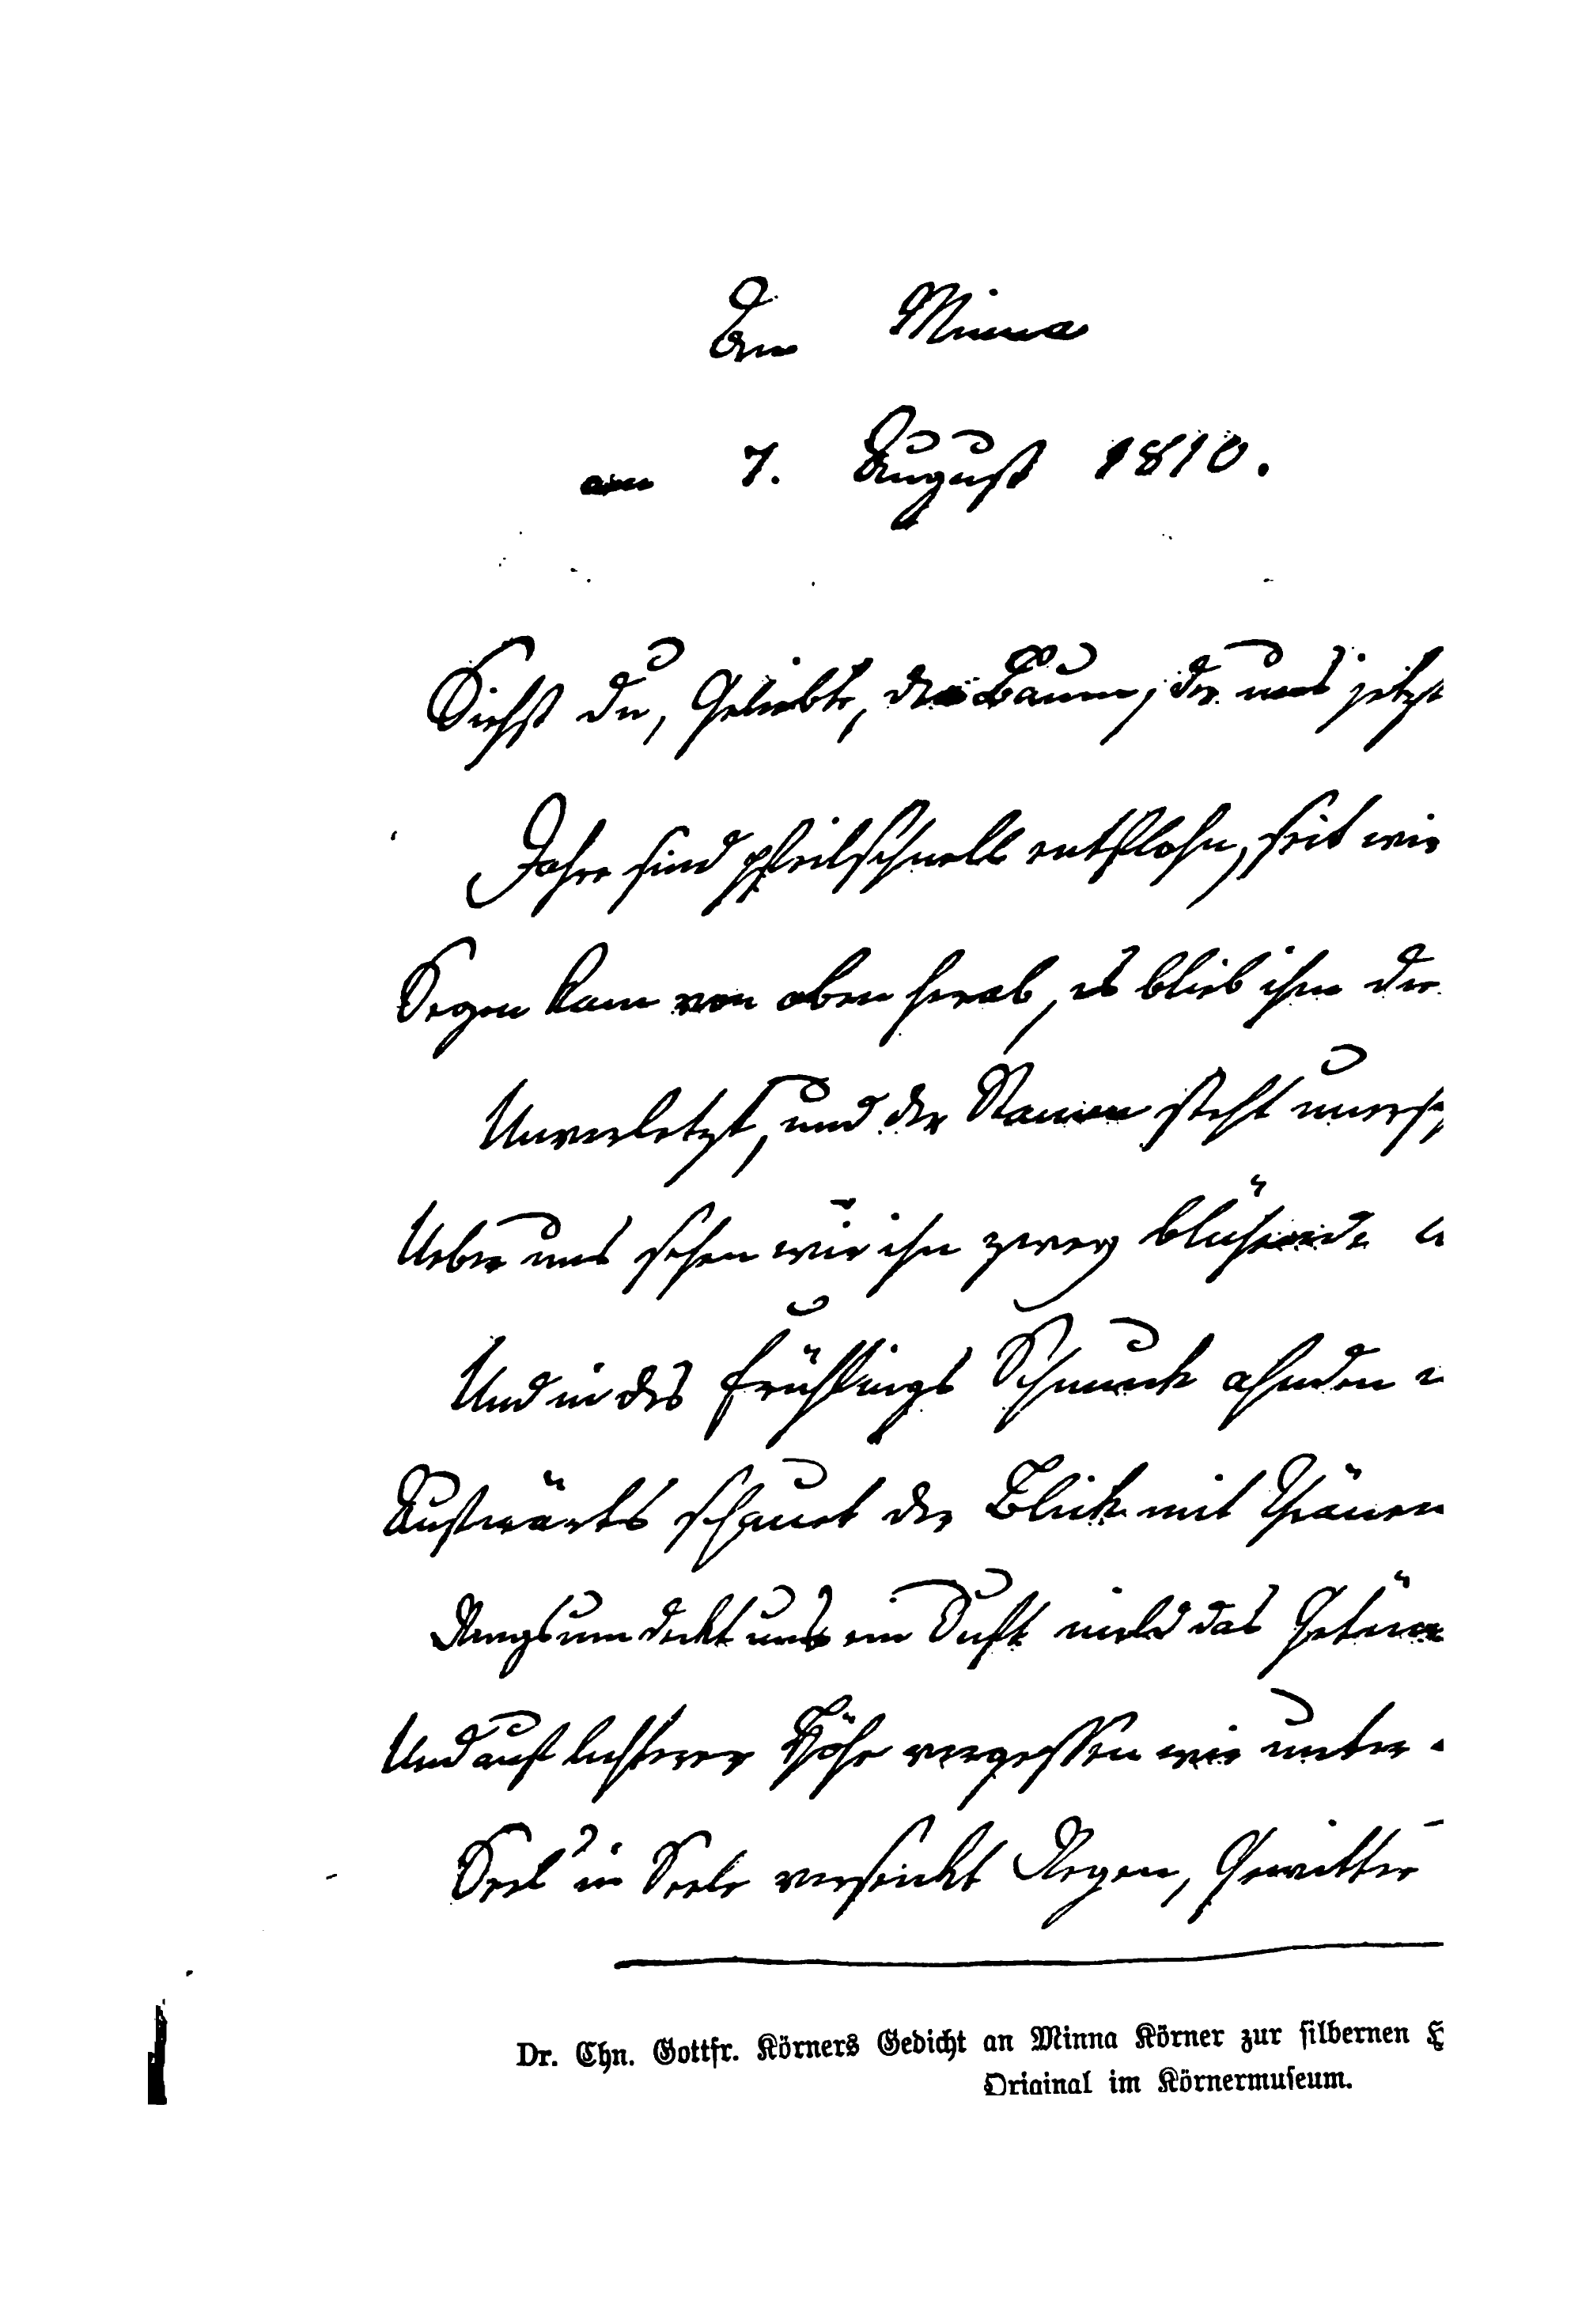 An Minna
am 7. August 1810.
Siehst du, Geliebte, den Baum, der uns jetzt
Jahre sind pfeilschnell entflohn, seit wir
Segen kam von oben herab, es blieb ihm die
Unverletzt, und der Stamm steht unersch
Ueber uns sehen wir ihn zwey blühende
Und in des Frühlings Schmuck ahnden
Aufwärts schauet der Blick mit Thränen
Rings um deckt uns ein Duft mild das Getüm
Und auf lichterer Höhe vergessen wir unter
Seel' in Seele versenkt Regen, Gewitter
Dr. Chn. Gottfr. Körners Gedicht an Minna Körner zur silbernen H
Original im Körnermuseum.